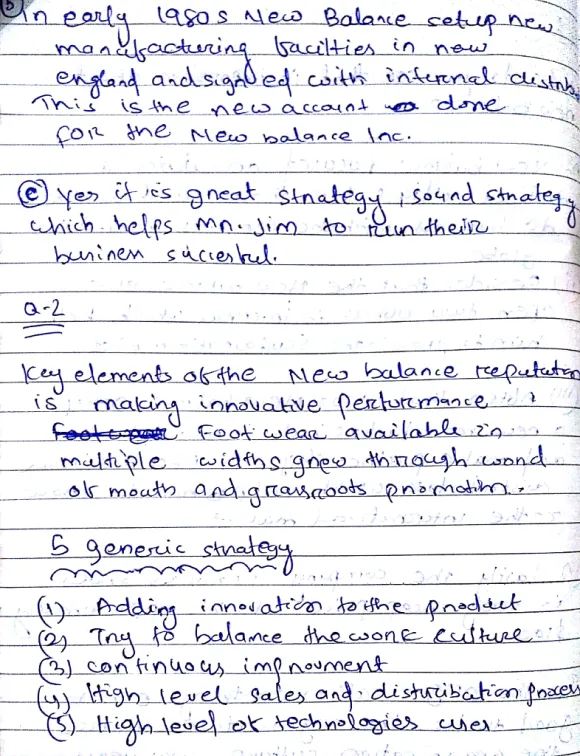 In early 1980s New Balance setup new
manufacturing facilties in new
england and signed with internal distrib
This is the new account done
for the New balance Inc.
(c) Yes it is great strategy; sound strategy
which helps Mr. Jim to run their
business succesful.
Q-2
Key elements of the New balance reputation
is making innovative performance
footwear Foot wear available in
multiple widths grew through word
of mouth and grassroots promotion.
5 generic strategy
(1) Adding innovation to the product
(2) Try to balance the work culture
(3) continuous improvment
(4) High level sales and distribution process
(5) High level of technologies uses.